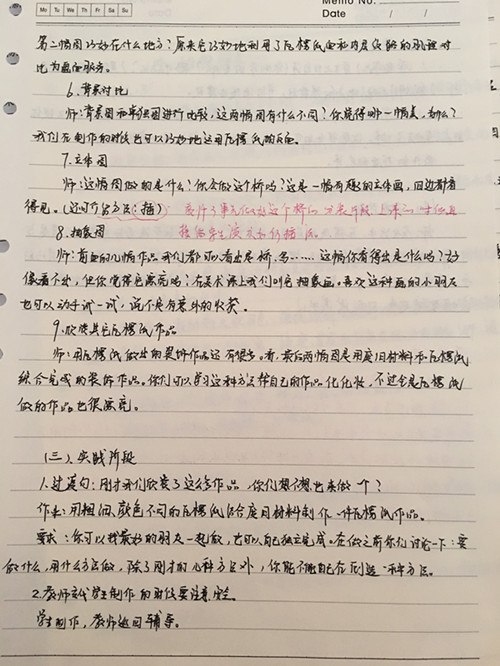 Memo No.
Mo Tu We Th Fr Sa Su
Date / /
第二幅图巧妙在什么地方?原来它巧妙地利用了瓦楞纸面和内层纹路的肌理对
比为画面服务。
6.背景对比
师:背景图和单独图进行比较,这两幅图有什么不同?你觉得哪一幅美,为什么?
我们在制作的时候也可以巧妙地运用瓦楞纸的底色。
7.立体图
师:这幅图做的是什么?你会做这个桥吗?这是一幅有趣的立体画,四边都看
得见。(还可介绍方法:插)
老师了事先做好这个桥的
接给学生演示如何插纸。
8.抽象图
师:前面的几幅作品我们都可以看出是桥、鸟……这幅你看得出是什么吗?好
像看不出,但你觉得它漂亮吗?在美术课上我们叫它抽象画。喜欢这种画的小朋友
也可以动手试一试,说不定有意外的收获。
9.欣赏其它瓦楞纸作品
师:用瓦楞纸做出的装饰作品还有很多。看,最后两幅图是用废旧材料和瓦楞纸
综合完成的装饰作品。你们可以学习这种方法帮自己的作品化化妆,不过全是瓦楞纸
做的作品也很漂亮。
(三)、实践阶段
1.过渡句:刚才我们欣赏了这么多作品,你们想不想也来做一个?
作业:用粗细、颜色不同的瓦楞纸结合废旧材料制作一件瓦楞纸作品。
要求:你可以找最好的朋友一起做,也可以自己独立完成。在做之前你们讨论一下:要
做什么,用什么方法做,除了刚才的几种方法外,你能不能自己在创造一种方法。
2.教师交代学生制作的时候要注意安全。
学生制作,教师巡回辅导。